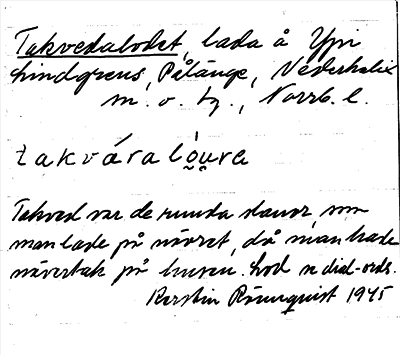 Takvedalodet, lada å Ypi
Lindgrens, Pålänge, Nederkalix
m. o. tg., Norrb. l.
takváralo̯u̯re
Takved var de runda slanor, som
man lade på nävret, då man hade
nävertak på husen. Lod se dial-ords.
Kerstin Rönnquist 1945